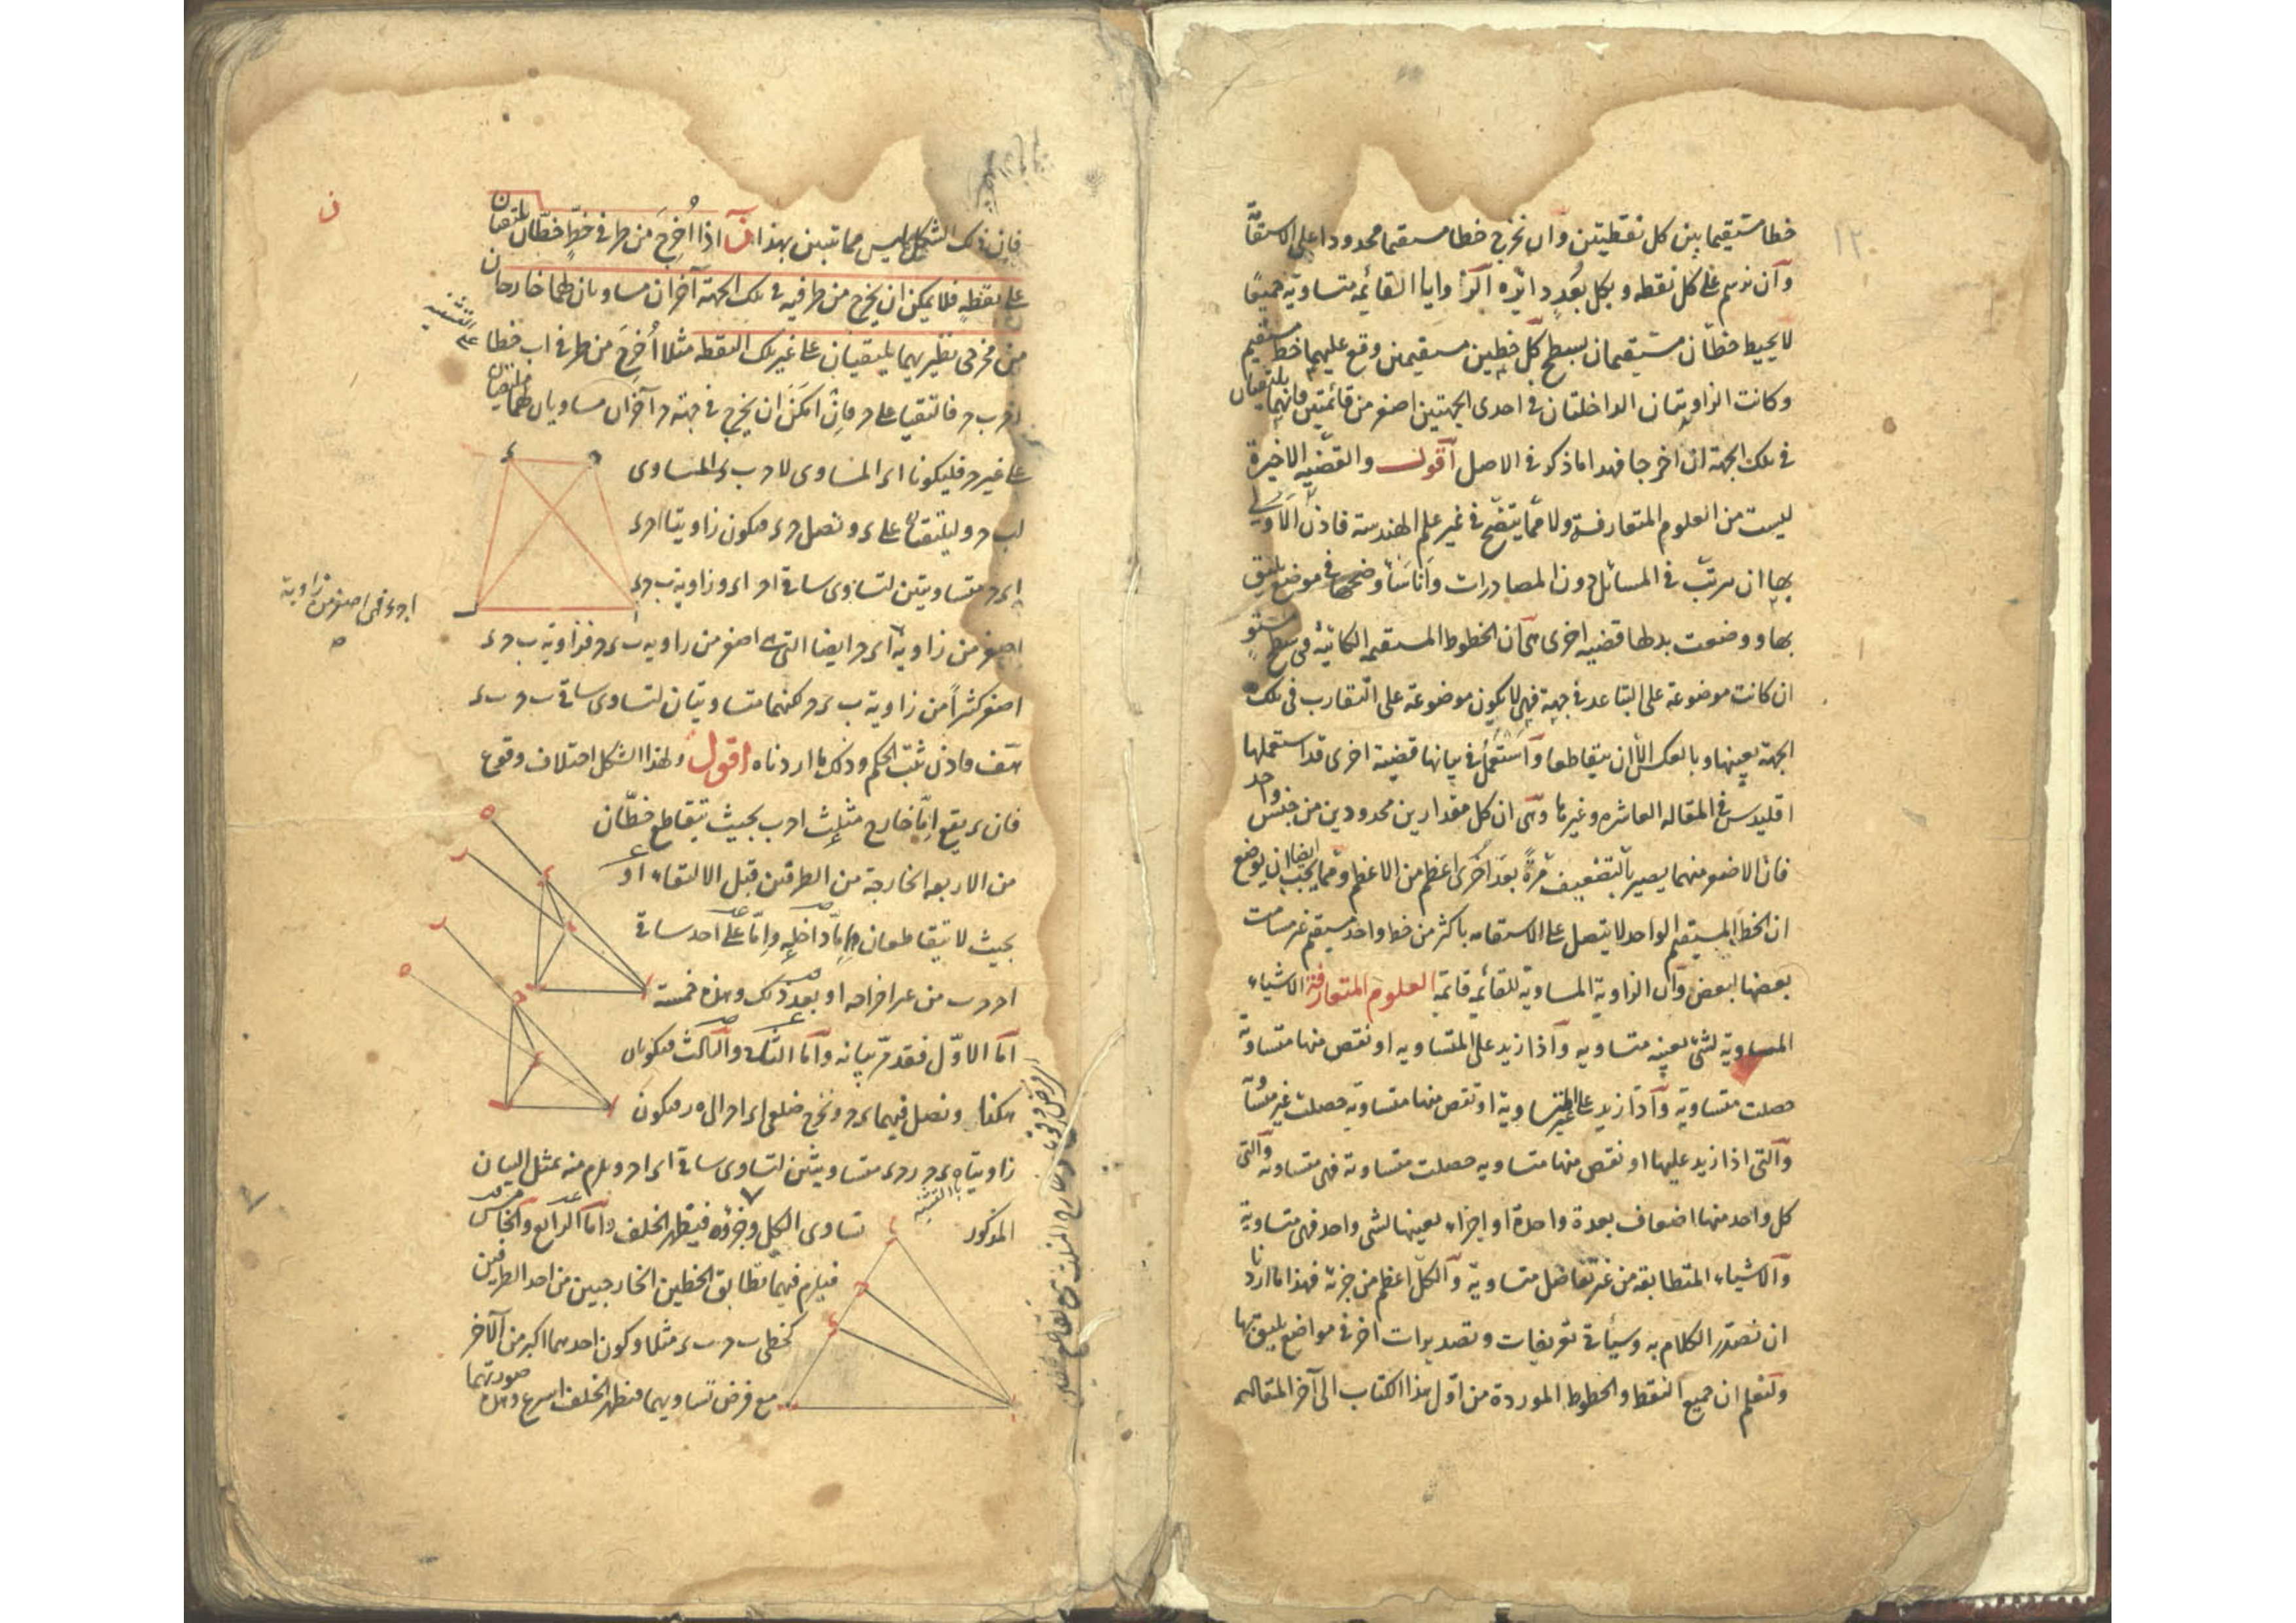 خطا مستقيما بين كل نقطتين وآن نخرج خطا مستقيما محدودا على الاستقامة
وآن نرسم على كل نقطه وبكل بُعد دائره آلزوايا القائمه متساوية جميعًا
لا يحيط خطّان مستقيمان بسطح كلّ خطين مستقيمين وقع عليهما خط مستقيم
وكانت الزاويتان الداخلتان فى احدى الجهتين اصغر من قائمتين فانهما يلتقيان
فى تلك الجهة ان اخرجا فهذا ما ذكر فى الاصل آقول والقضيه الاخيرة
ليست من العلوم المتعارفة ولا ممّا يتضّح فى غير علم الهندسة فاذن الاَولى
بها ان ترتّب فى المسائل دون المصادرات واَنا سَأوضحها فى موضع يليق
بها ووضعت بدلها قضيه اخرى هى آن الخطوط المستقيمه الكائنة فى سطح مستوٍ
ان كانت موضوعة على التباعد فى جهة فهى لا يكون موضوعة على التقارب فى تلك
الجهة بعينها وبالعكس الاّ ان يتقاطعا وآستعمل فى بيانها قضية اخرى قد استعملها
اقليدس فى المقاله العاشره وغيرها وهى ان كل مقدارين محدودين من جنس واحد
فان الاصغر منهما يصير بالتضعيف مرّةً بعد اُخرى اعظم من الاعظم وممّا يجب ايضا ان يوضع
ان الخط المستقيم الواحد لا يتصل على الاستقامه باكثر من خط واحد مستقيم غير مسامت
بعضها لبعض وآن الزاوية المساوية للقائمه قائمة العلوم المتعارفة الاشياء
المساوية لشئ بعينه متساويه وآذا زيد على المتساويه او نقص منها متساوية
حصلت متساوية وآذا زيد على غير المتساوية او نقص منها متساويه حصلت غير متساوية
وآلتى اذا زيد عليها او نقص منها متساويه حصلت متساوية فهى متساوية وآلتى
كل واحد منها اضعاف بعدة واحدة او اجزاء بعينها لشى واحد فهى متساوية
وآلاشياء المتطابقه من غير تفاضل متساوية وآلكلّ اعظم من جزئه فهذا ما اردنا
ان نصدّر الكلام به وسيأتى تعريفات وتصديرات اخر فى مواضع يليق بها
ولنعلم ان جميع النقط والخطوط الموردة من اوّل هذا الكتاب الى آخر المقاله
فان ذلك الشكل ليس مما تبين بهذا ز آذا اُخرِجَ من طرفى خطٍّ خطّان يلتقيان
على نقطهٍ فلا يمكن ان يخرج من طرفيه فى تلك الجهة آخران مساويان لهما خارجان
من مخرجى نظيريهما يلتقيان على غير تلك النقطه مثلا اُخرِجَ من طرفى اب خطا
اح ب ح فالتقيا على ح فاِن امكَنَ ان يخرج فى جهة ح آخران مساويان لهما يلتقيان
على غير ح فليكونا اء المساوى لاح ب ء المساوى
لب ح وليلتقيا على ء ونصل ح ء فيكون زاويتا اح ء
اء ح متساويتين لتساوى ساقى اح اء وزاوية ب ح ء
اصغر من زاوية اء ح ايضا التى هى اصغر من زاويه ب ء ح فزاوية ب ح ء
اصغر كثيراً من زاوية ب ء ح لكنهما متساويتان لتساوى ساقى ب ح ب ء
هف فاذن ثبت الحكم وذلك ما اردناه اقول ولهذا الشكل اختلاف وقوع
فان ء يقع اِمّا خارج مثلث اح ب بحيث يتقاطع خطّان
من الاربعه الخارجة من الطرفين قبل الالتقاء او
بحيث لا يتقاطعان واِمّا داخله واِمّا على احد ساقى
اح ح ب من غير اخراجه او بعد ذلك وهذه خمسة
آمّا الاوّل فقد مرّ بيانه وآمّا الثانى وآلثالث فيكونان
هكذا ونصل فيهما ء ح ونخرج ضلعى اء اح الى ه ر فيكون
زاويتا ه ء ح ر ح ء متساويتين لتساوى ساقى اء اح ويلزم منه بمثل البيان
المذكور تساوى الكل وجزؤه فيظهر الخلف وآمّا الرابع وآلخامس
فيلزم فيهما تطابق الخطين الخارجين من احد الطرفين
كخطى ب ح ب ء مثلا وكون احدهما اكبر من آلاخر
مع فرض تساويهما فيظهر الخلف اسرع وهذه صورتهما